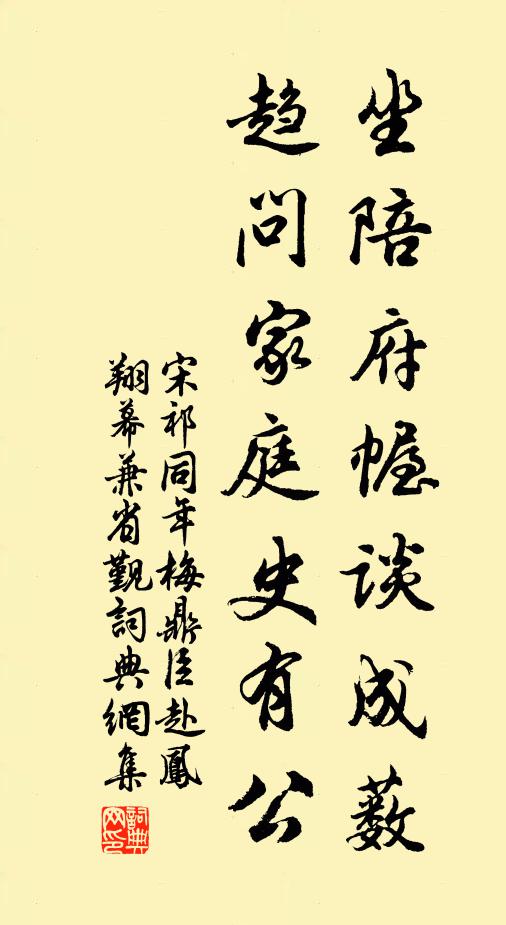 坐陪府幄談成藪
趋問家庭史有公
宋祁同年梅鼎臣赴鳳
翔幕兼省觐詞典網集
詞典網印